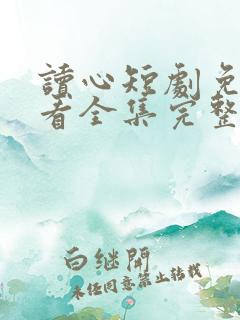 讀心短劇免
看全集完整
白继開
未经同意禁止转载